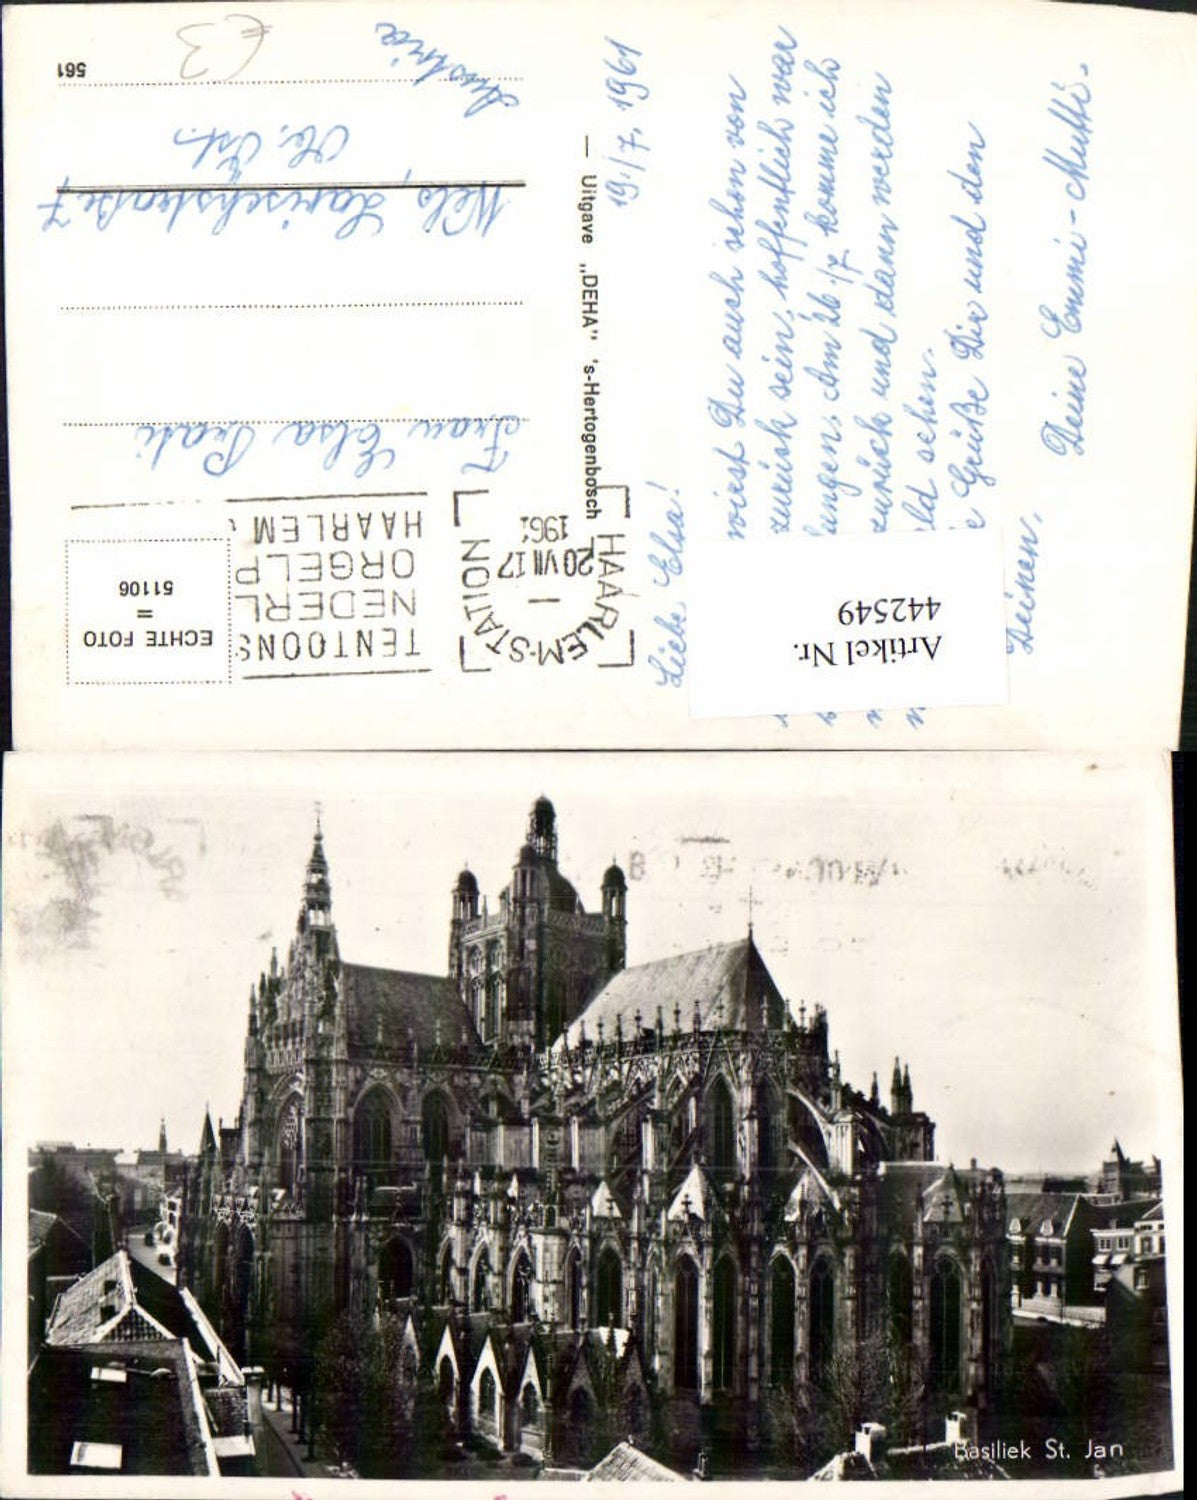 Liebe Elsa!
19./7. 1961
wirst Du auch schon von
zurück sein, hoffentlich war
lungen. Am 26./7. komme ich
zurück und dann werden
ld sehen.
e Grüße Dir und den
Deinen,
Deine Emmi-Mutti.
Artikel Nr.
442549
— Uitgave „DEHA" 's-Hertogenbosch
ECHTE FOTO
=
51106
TENTOONS
NEDERL
ORGELP
HAARLEM
HAARLEM-STATION
20 VII 17
196
Frau Elsa
Wels,
Ob. Öst.
Austria
561
€3
Basiliek St. Jan